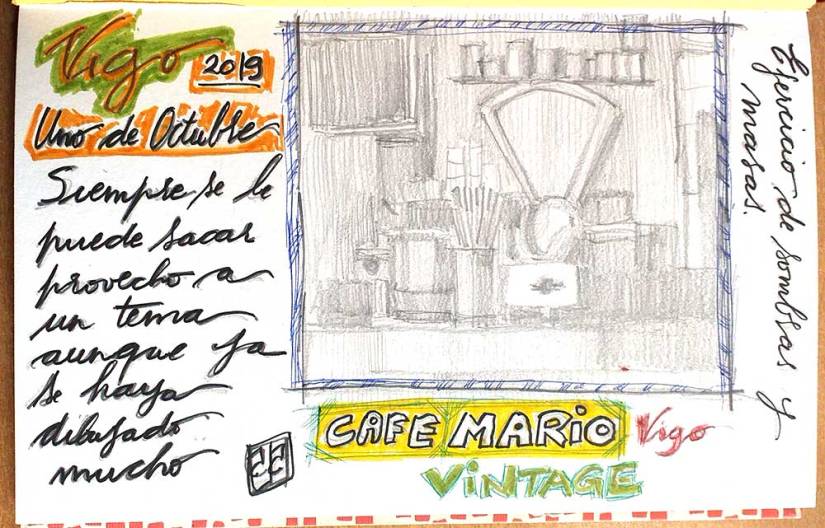 Vigo
2019
Uno de Octubre
Siempre se le
puede sacar
provecho a
un tema
aunque ya
se haya
dibujado
mucho
Ejercicio de sombras y
masas.
CAFE MARIO Vigo
VINTAGE